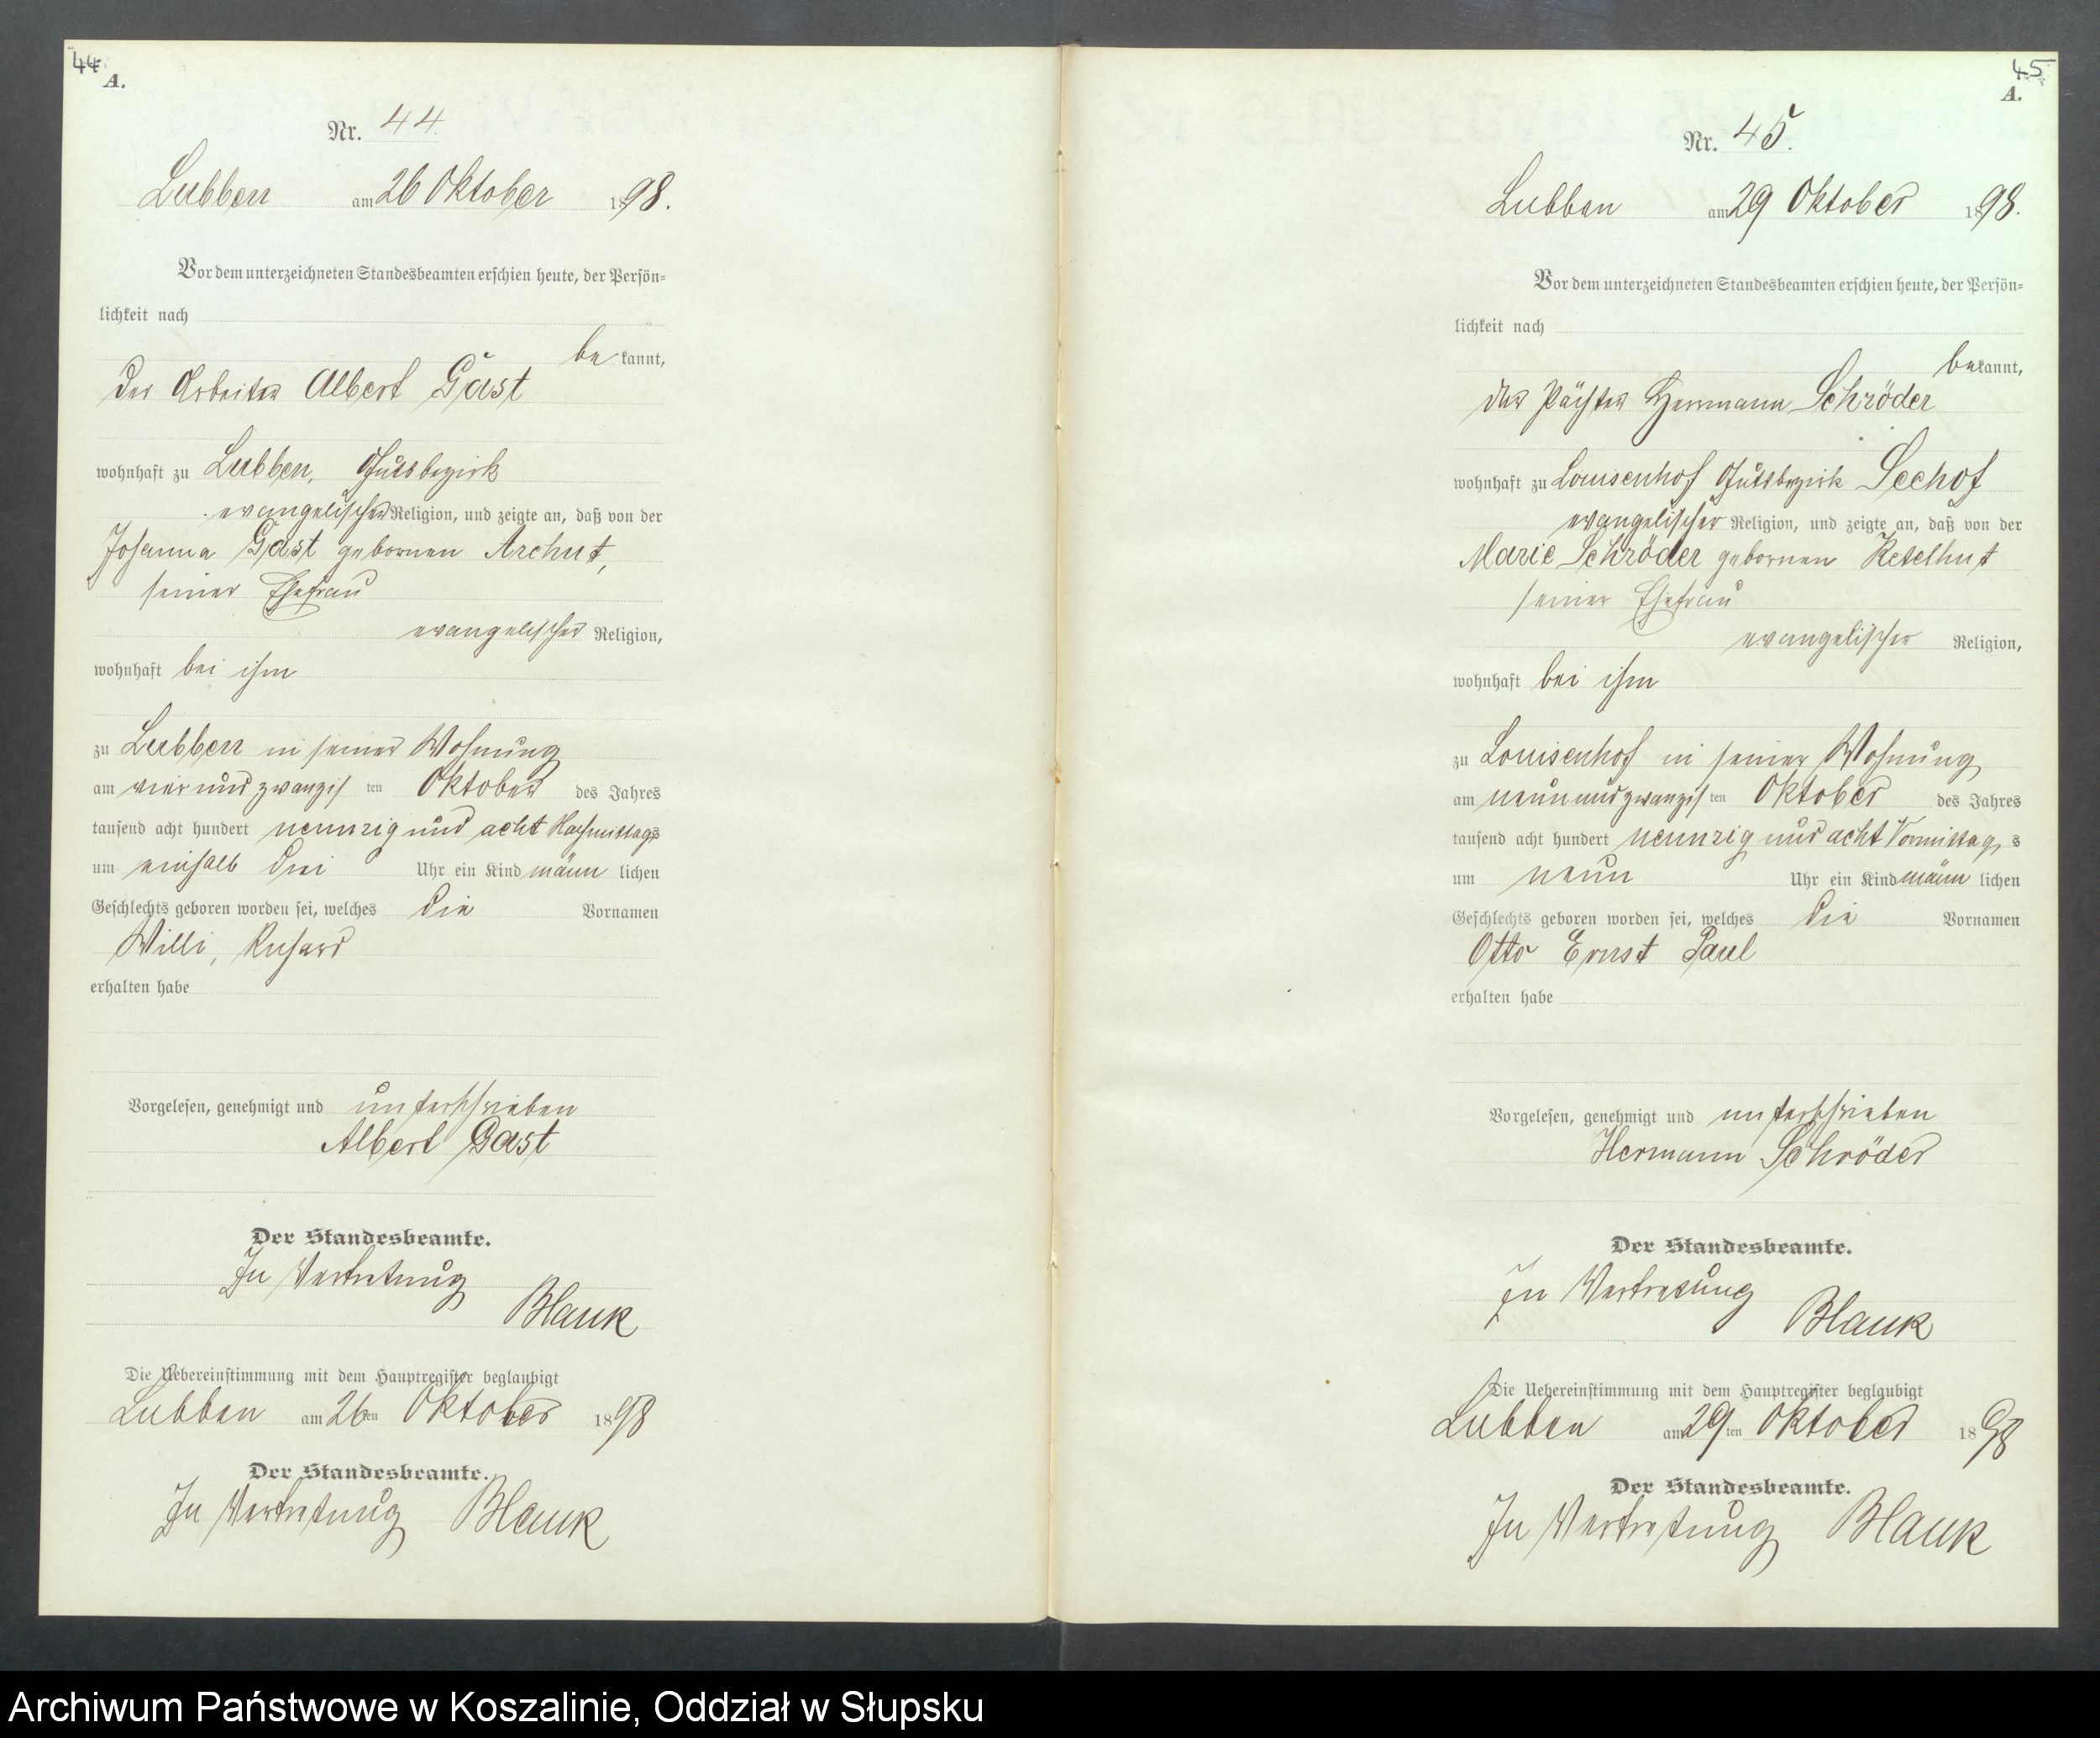 44.
A.
Nr. 44.
Lubben am 26 Oktober 1898.
Vor dem unterzeichneten Standesbeamten erschien heute, der Persön-
lichkeit nach
be kannt,
der Arbeiter Albert Gast
wohnhaft zu Lubben, Gutsbezirk
evangelischer Religion, und zeigte an, daß von der
Johanna Gast gebornen Archut,
seiner Ehefrau
evangelischer Religion,
wohnhaft bei ihm
zu Lubben in seiner Wohnung
am vier und zwanzigsten Oktober des Jahres
tausend acht hundert neunzig und acht Nachmittags
um einhalb drei Uhr ein Kind männlichen
Geschlechts geboren worden sei, welches die Vornamen
Willi, Richard
erhalten habe
Vorgelesen, genehmigt und unterschrieben
Albert Gast
Der Standesbeamte.
In Vertretung
Blank
Die Uebereinstimmung mit dem Hauptregister beglaubigt
Lubben am 26ten Oktober 1898
Der Standesbeamte.
In Vertretung Blank
45.
A.
Nr. 45.
Lubben am 29 Oktober 1898.
Vor dem unterzeichneten Standesbeamten erschien heute, der Persön-
lichkeit nach
bekannt,
der Pächter Hermann Schröder
wohnhaft zu Louisenhof Gutsbezirk Seehof
evangelischer Religion, und zeigte an, daß von der
Marie Schröder gebornen Ketelhut
seiner Ehefrau
evangelischer Religion,
wohnhaft bei ihm
zu Louisenhof in seiner Wohnung
am neun und zwanzigsten Oktober des Jahres
tausend acht hundert neunzig und acht Vormittags
um neun Uhr ein Kind männlichen
Geschlechts geboren worden sei, welches die Vornamen
Otto Ernst Paul
erhalten habe
Vorgelesen, genehmigt und unterschrieben
Hermann Schröder
Der Standesbeamte.
In Vertretung
Blank
Die Uebereinstimmung mit dem Hauptregister beglaubigt
Lubben am 29ten Oktober 1898
Der Standesbeamte.
In Vertretung Blank
Archiwum Państwowe w Koszalinie, Oddział w Słupsku